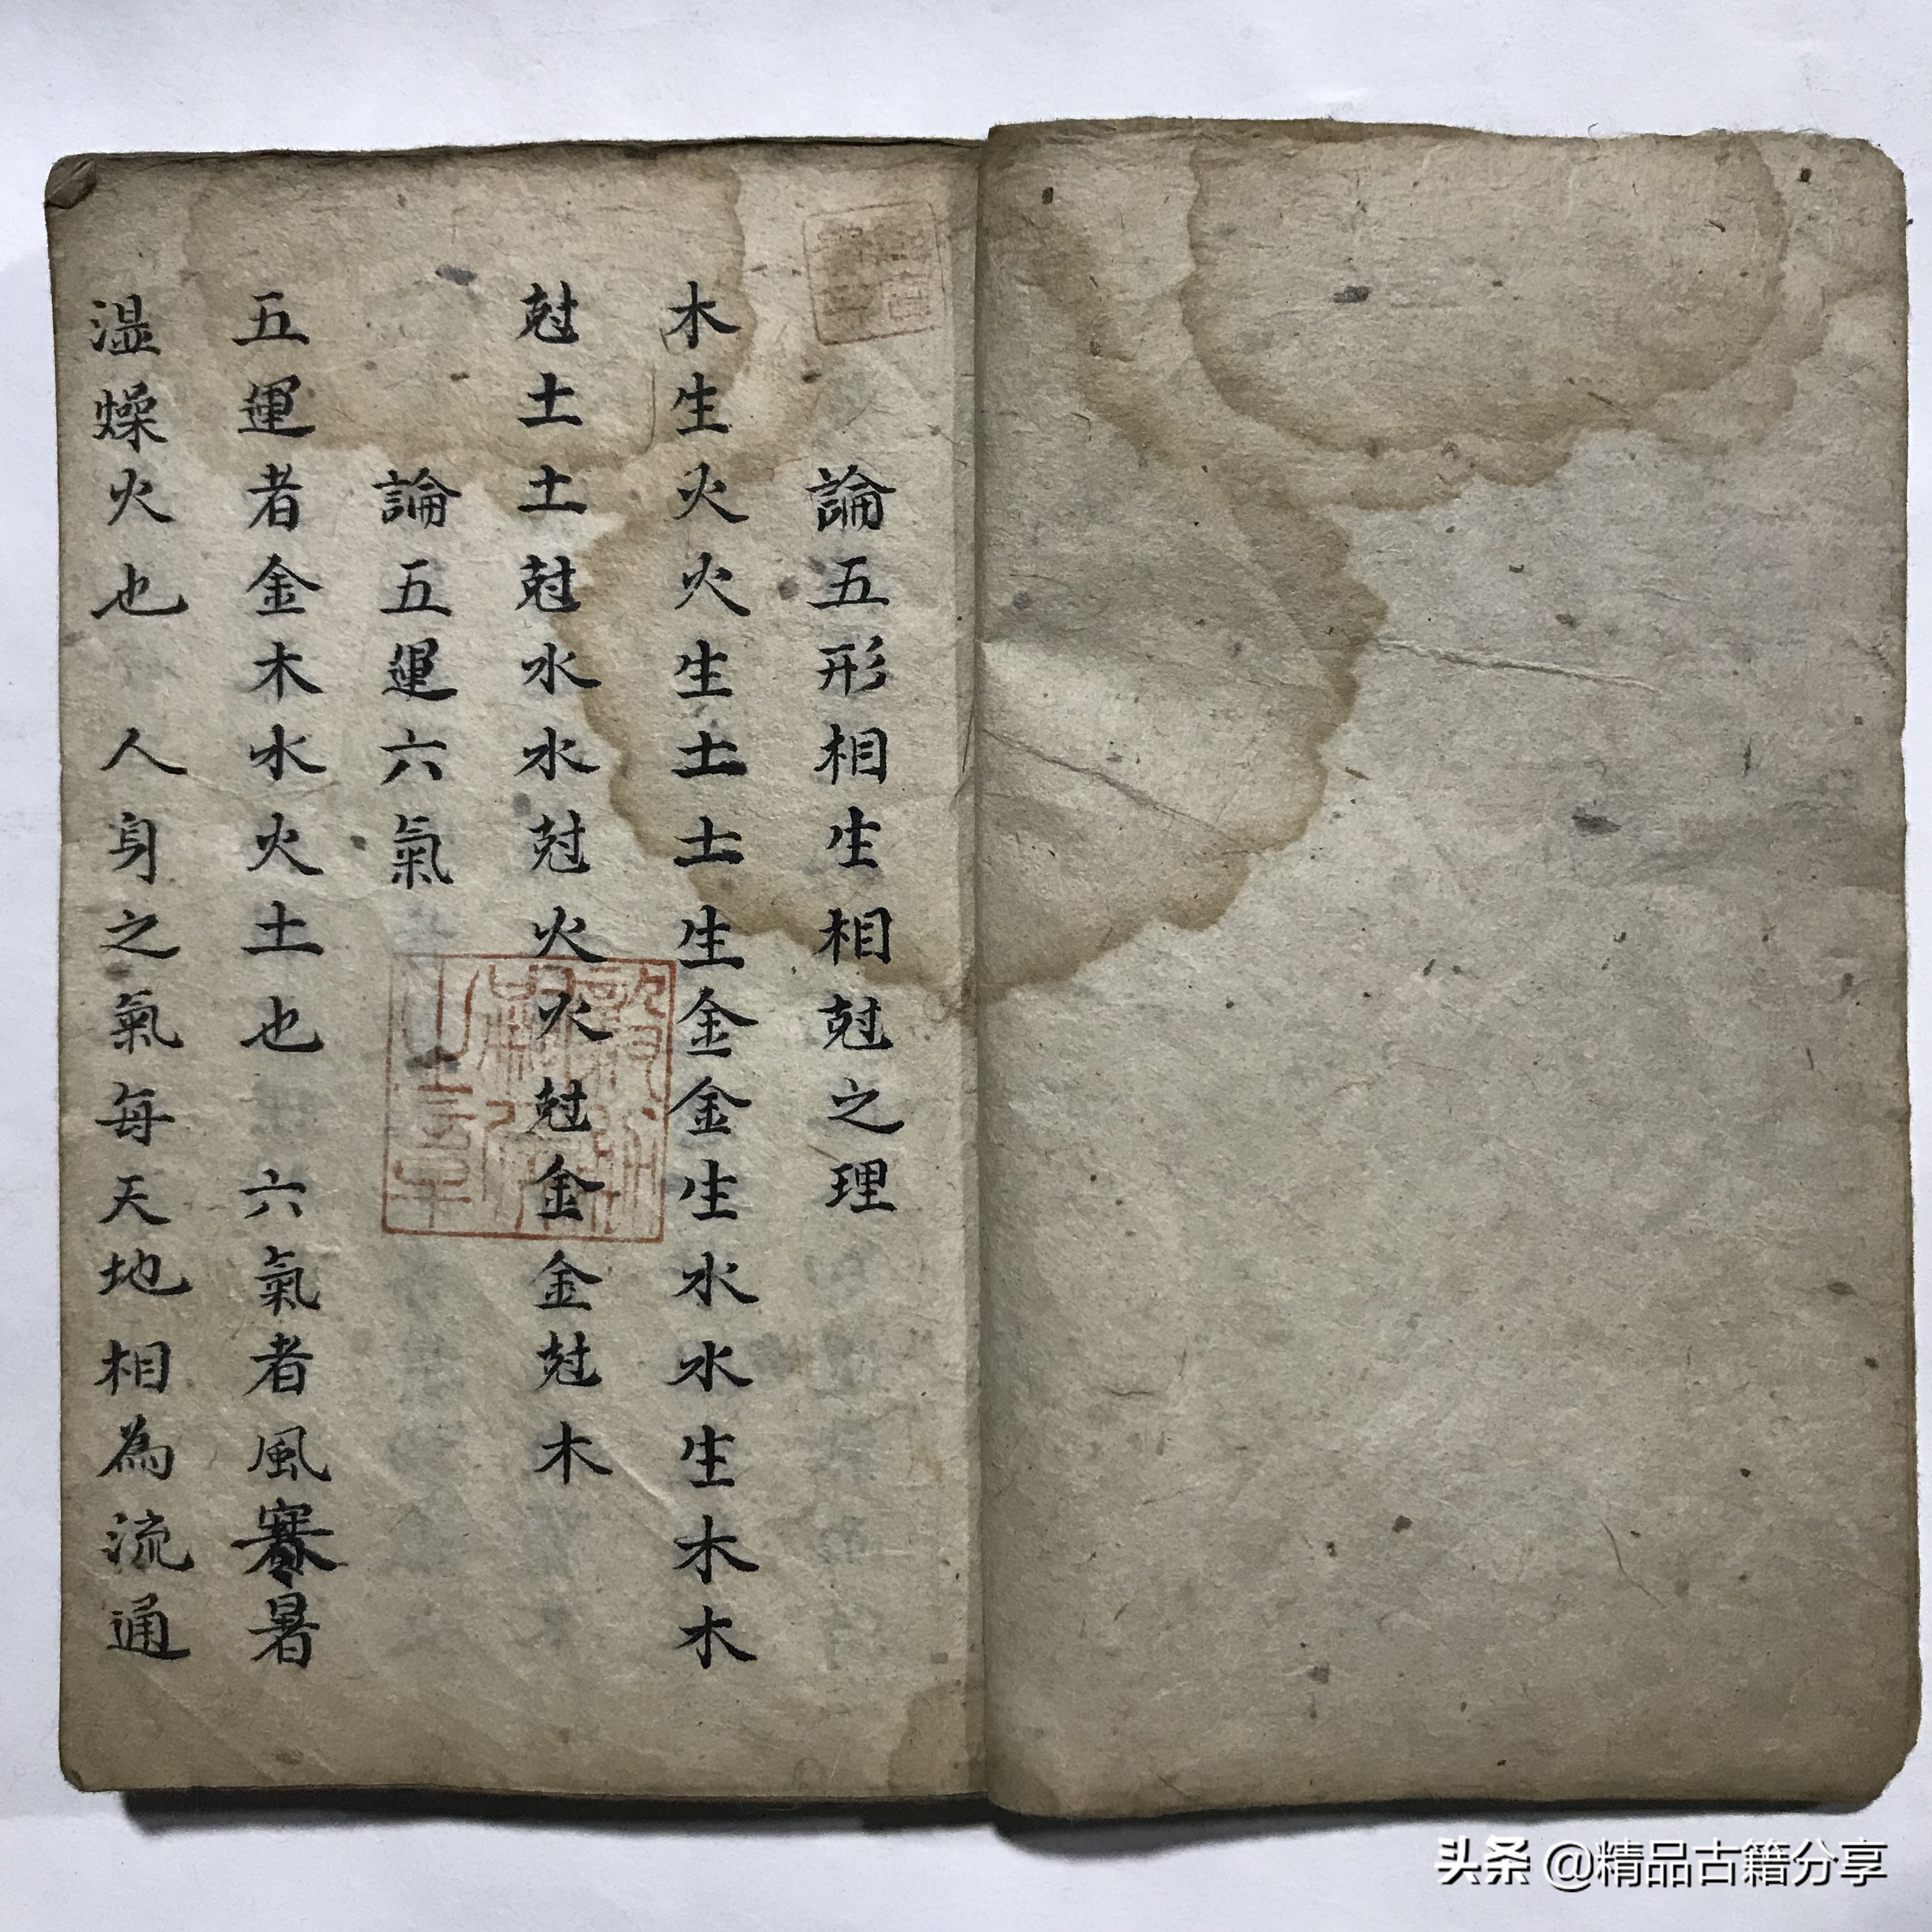 論五形相生相尅之理
木生火火生土土生金金生水水生木木
尅土土尅水水尅火火尅金金尅木
論五運六氣
五運者金木水火土也 六氣者風寒暑
湿燥火也 人身之氣每天地相為流通
头条 @精品古籍分享